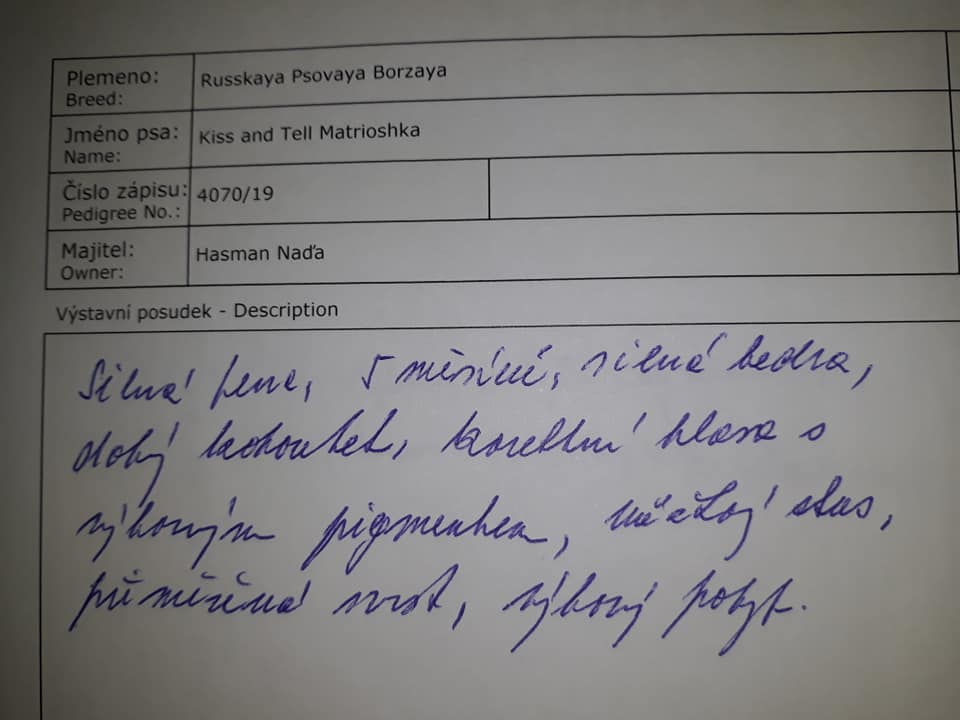 Plemeno: Russkaya Psovaya Borzaya
Breed:
Jméno psa: Kiss and Tell Matrioshka
Name:
Číslo zápisu: 4070/19
Pedigree No.:
Majitel: Hasman Naďa
Owner:
Výstavní posudek - Description
Silná fena, 5 měsíců, silná bedra,
dobrý kohoutek, korektní hlava s
výborným pigmentem, stav,
přiměřená srst, výborný pohyb.